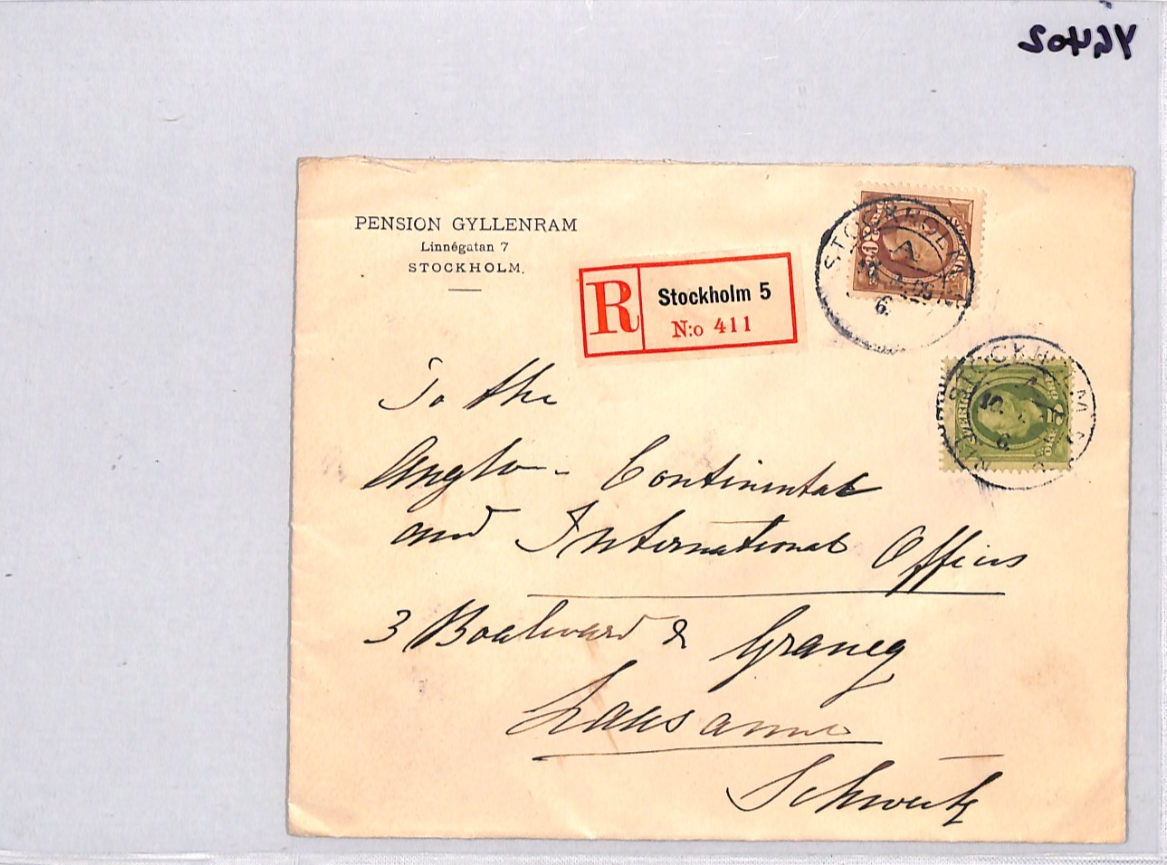 PENSION GYLLENRAM
Linnégatan 7
STOCKHOLM.
R
Stockholm 5
N:o 411
STOCKHOLM
STOCKHOLM
SVERIGE
To the
Anglo-Continental
and International Offices
3 Boulevard & Grancy
Lausanne
Schweitz